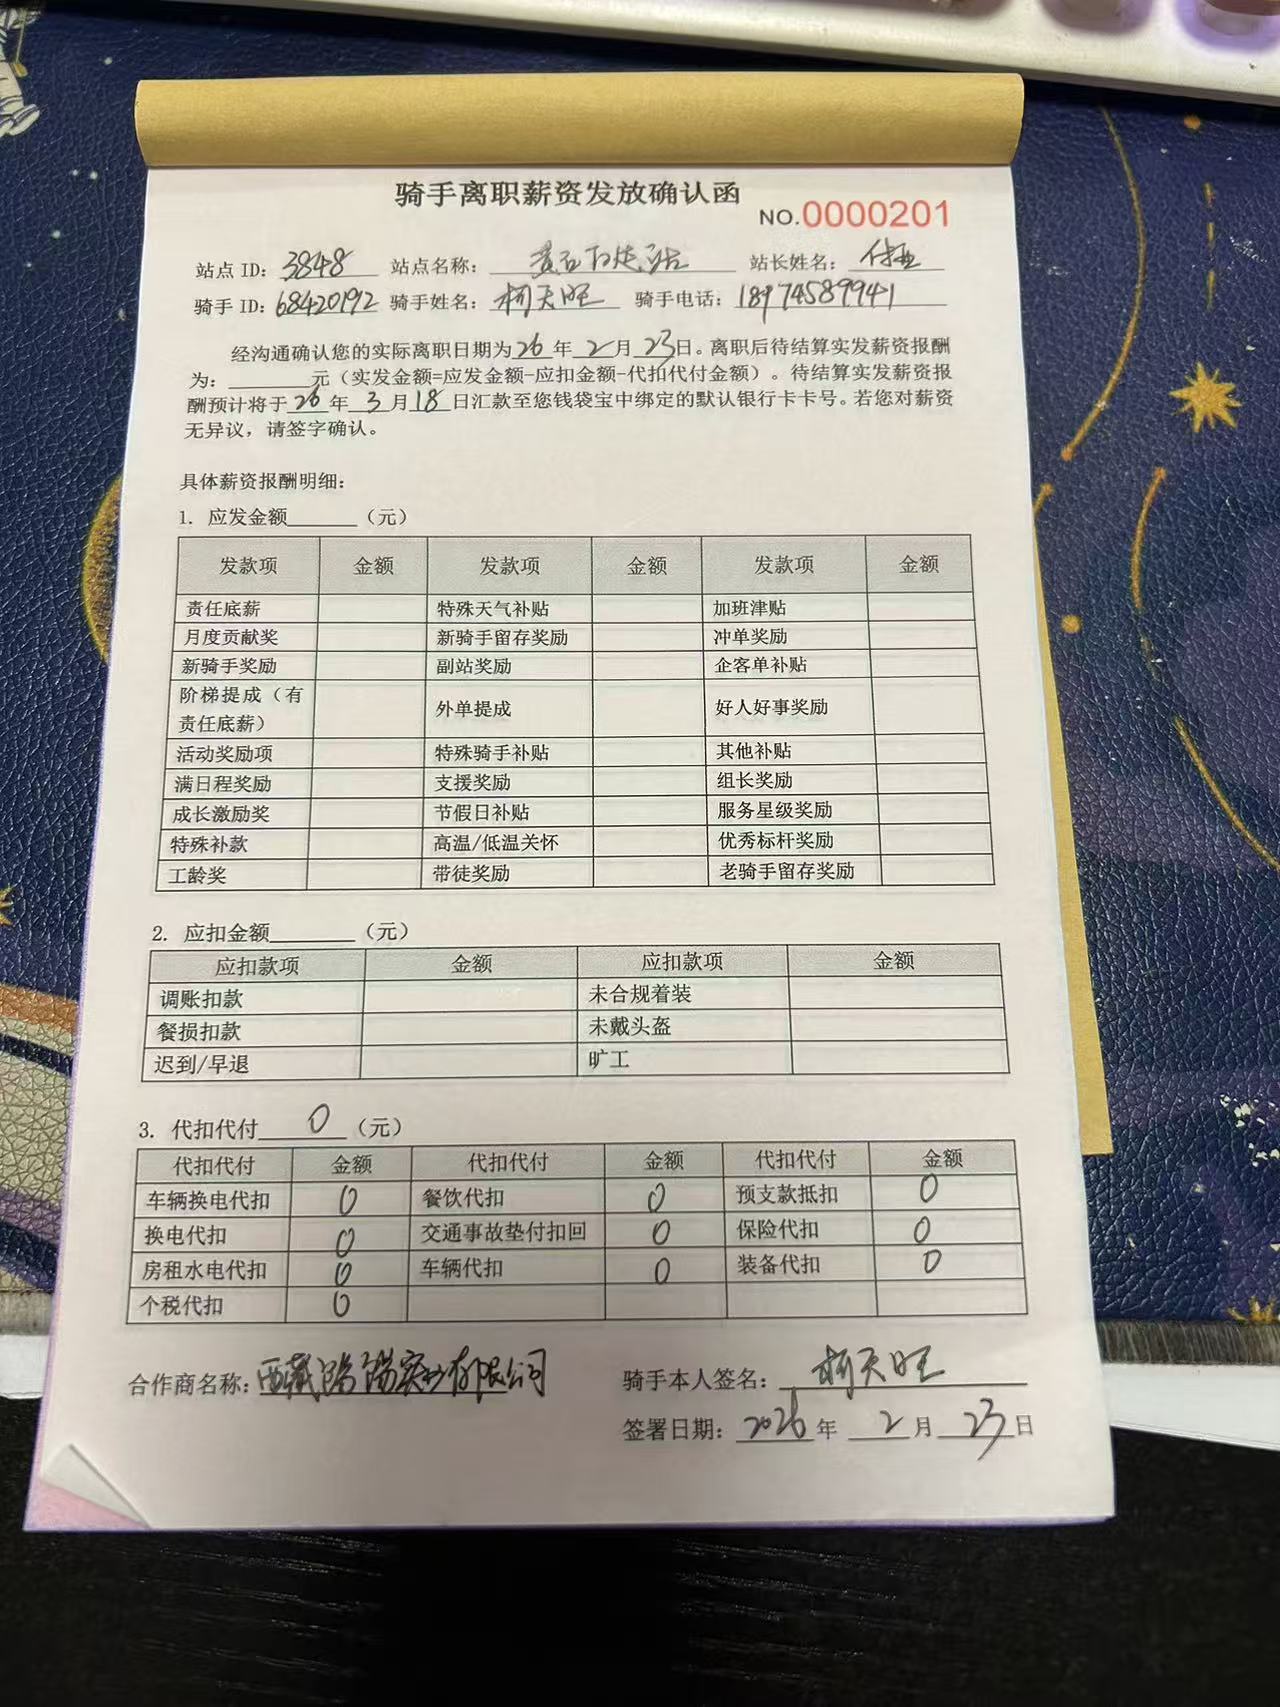 骑手离职薪资发放确认函
NO.0000201
站点 ID: 3848 站点名称: 黄石 站 站长姓名:
骑手 ID: 68420192 骑手姓名: 柯天旺 骑手电话: 18974589941
经沟通确认您的实际离职日期为 26 年 2 月 23 日。离职后待结算实发薪资报酬
为: ______元（实发金额=应发金额-应扣金额-代扣代付金额）。待结算实发薪资报
酬预计将于 26 年 3 月 18 日汇款至您钱袋宝中绑定的默认银行卡卡号。若您对薪资
无异议，请签字确认。
具体薪资报酬明细:
1. 应发金额______（元）
发款项 金额 发款项 金额 发款项 金额
责任底薪 特殊天气补贴 加班津贴
月度贡献奖 新骑手留存奖励 冲单奖励
新骑手奖励 副站奖励 企客单补贴
阶梯提成（有责任底薪） 外单提成 好人好事奖励
活动奖励项 特殊骑手补贴 其他补贴
满日程奖励 支援奖励 组长奖励
成长激励奖 节假日补贴 服务星级奖励
特殊补款 高温/低温关怀 优秀标杆奖励
工龄奖 带徒奖励 老骑手留存奖励
2. 应扣金额______（元）
应扣款项 金额 应扣款项 金额
调账扣款 未合规着装
餐损扣款 未戴头盔
迟到/早退 旷工
3. 代扣代付 0 （元）
代扣代付 金额 代扣代付 金额 代扣代付 金额
车辆换电代扣 0 餐饮代扣 0 预支款抵扣 0
换电代扣 0 交通事故垫付扣回 0 保险代扣 0
房租水电代扣 0 车辆代扣 0 装备代扣 0
个税代扣 0
合作商名称: 西藏 实业有限公司 骑手本人签名: 柯天旺
签署日期: 2026 年 2 月 23 日